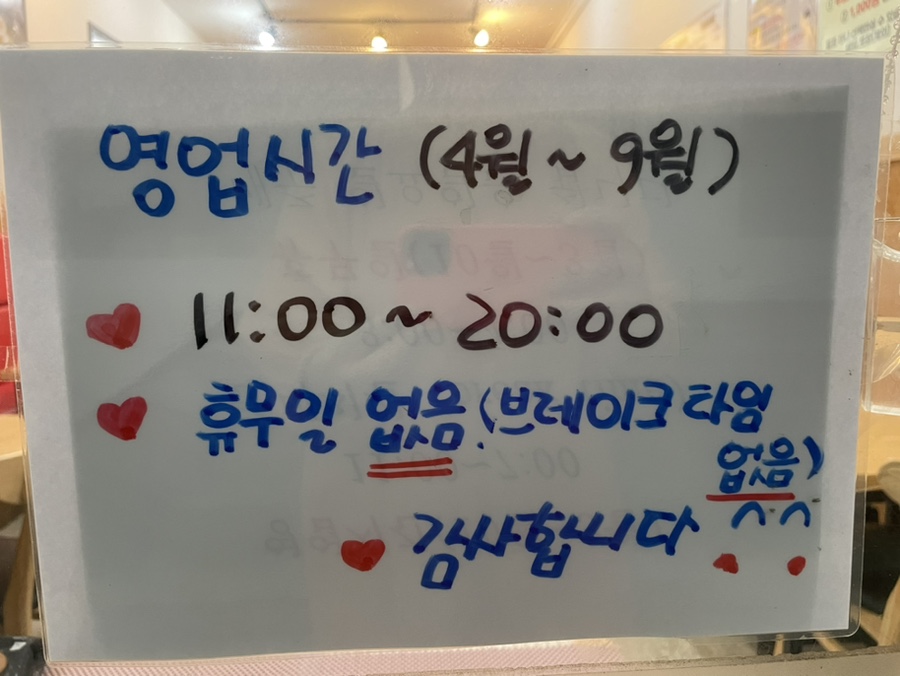 영업시간 (4월 ~ 9월)
11:00 ~ 20:00
휴무일 없음 (브레이크타임
없음)
감사합니다 ^^